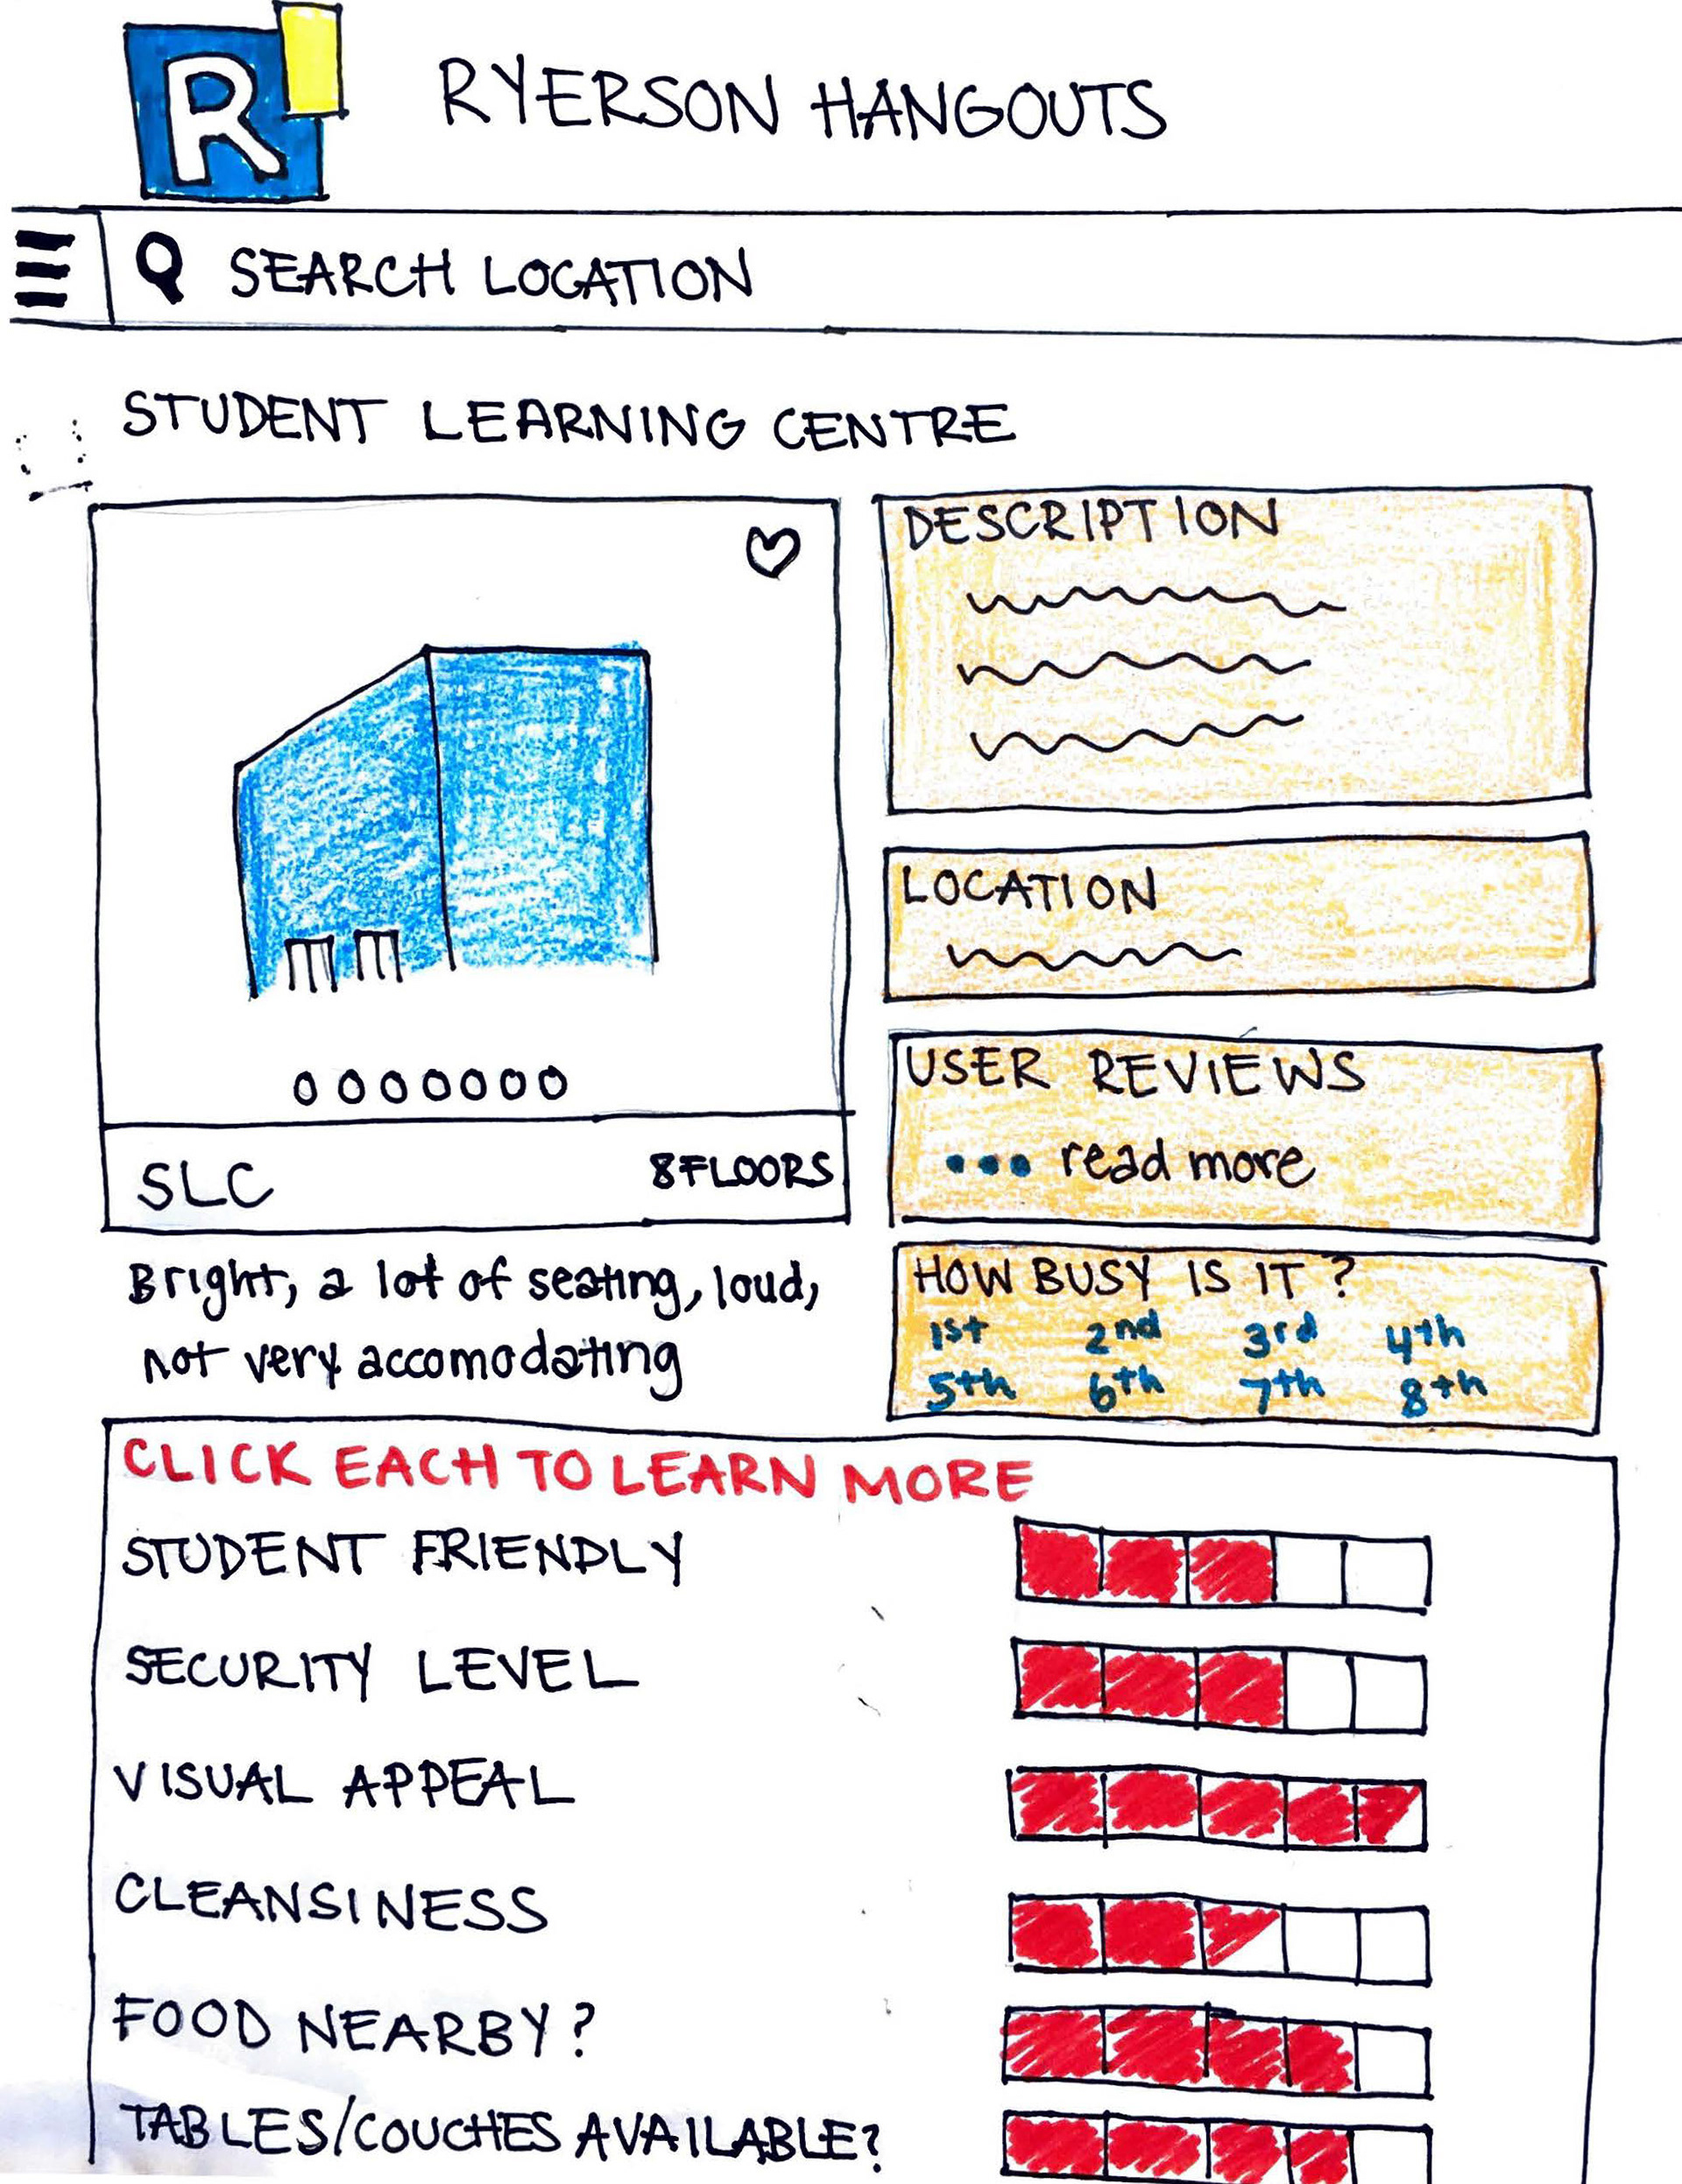 R
RYERSON HANGOUTS
SEARCH LOCATION
STUDENT LEARNING CENTRE
SLC 8 FLOORS
Bright, a lot of seating, loud,
not very accomodating
DESCRIPTION
LOCATION
USER REVIEWS
••• read more
HOW BUSY IS IT?
1st 2nd 3rd 4th
5th 6th 7th 8th
CLICK EACH TO LEARN MORE
STUDENT FRIENDLY
SECURITY LEVEL
VISUAL APPEAL
CLEANSINESS
FOOD NEARBY?
TABLES/COUCHES AVAILABLE?